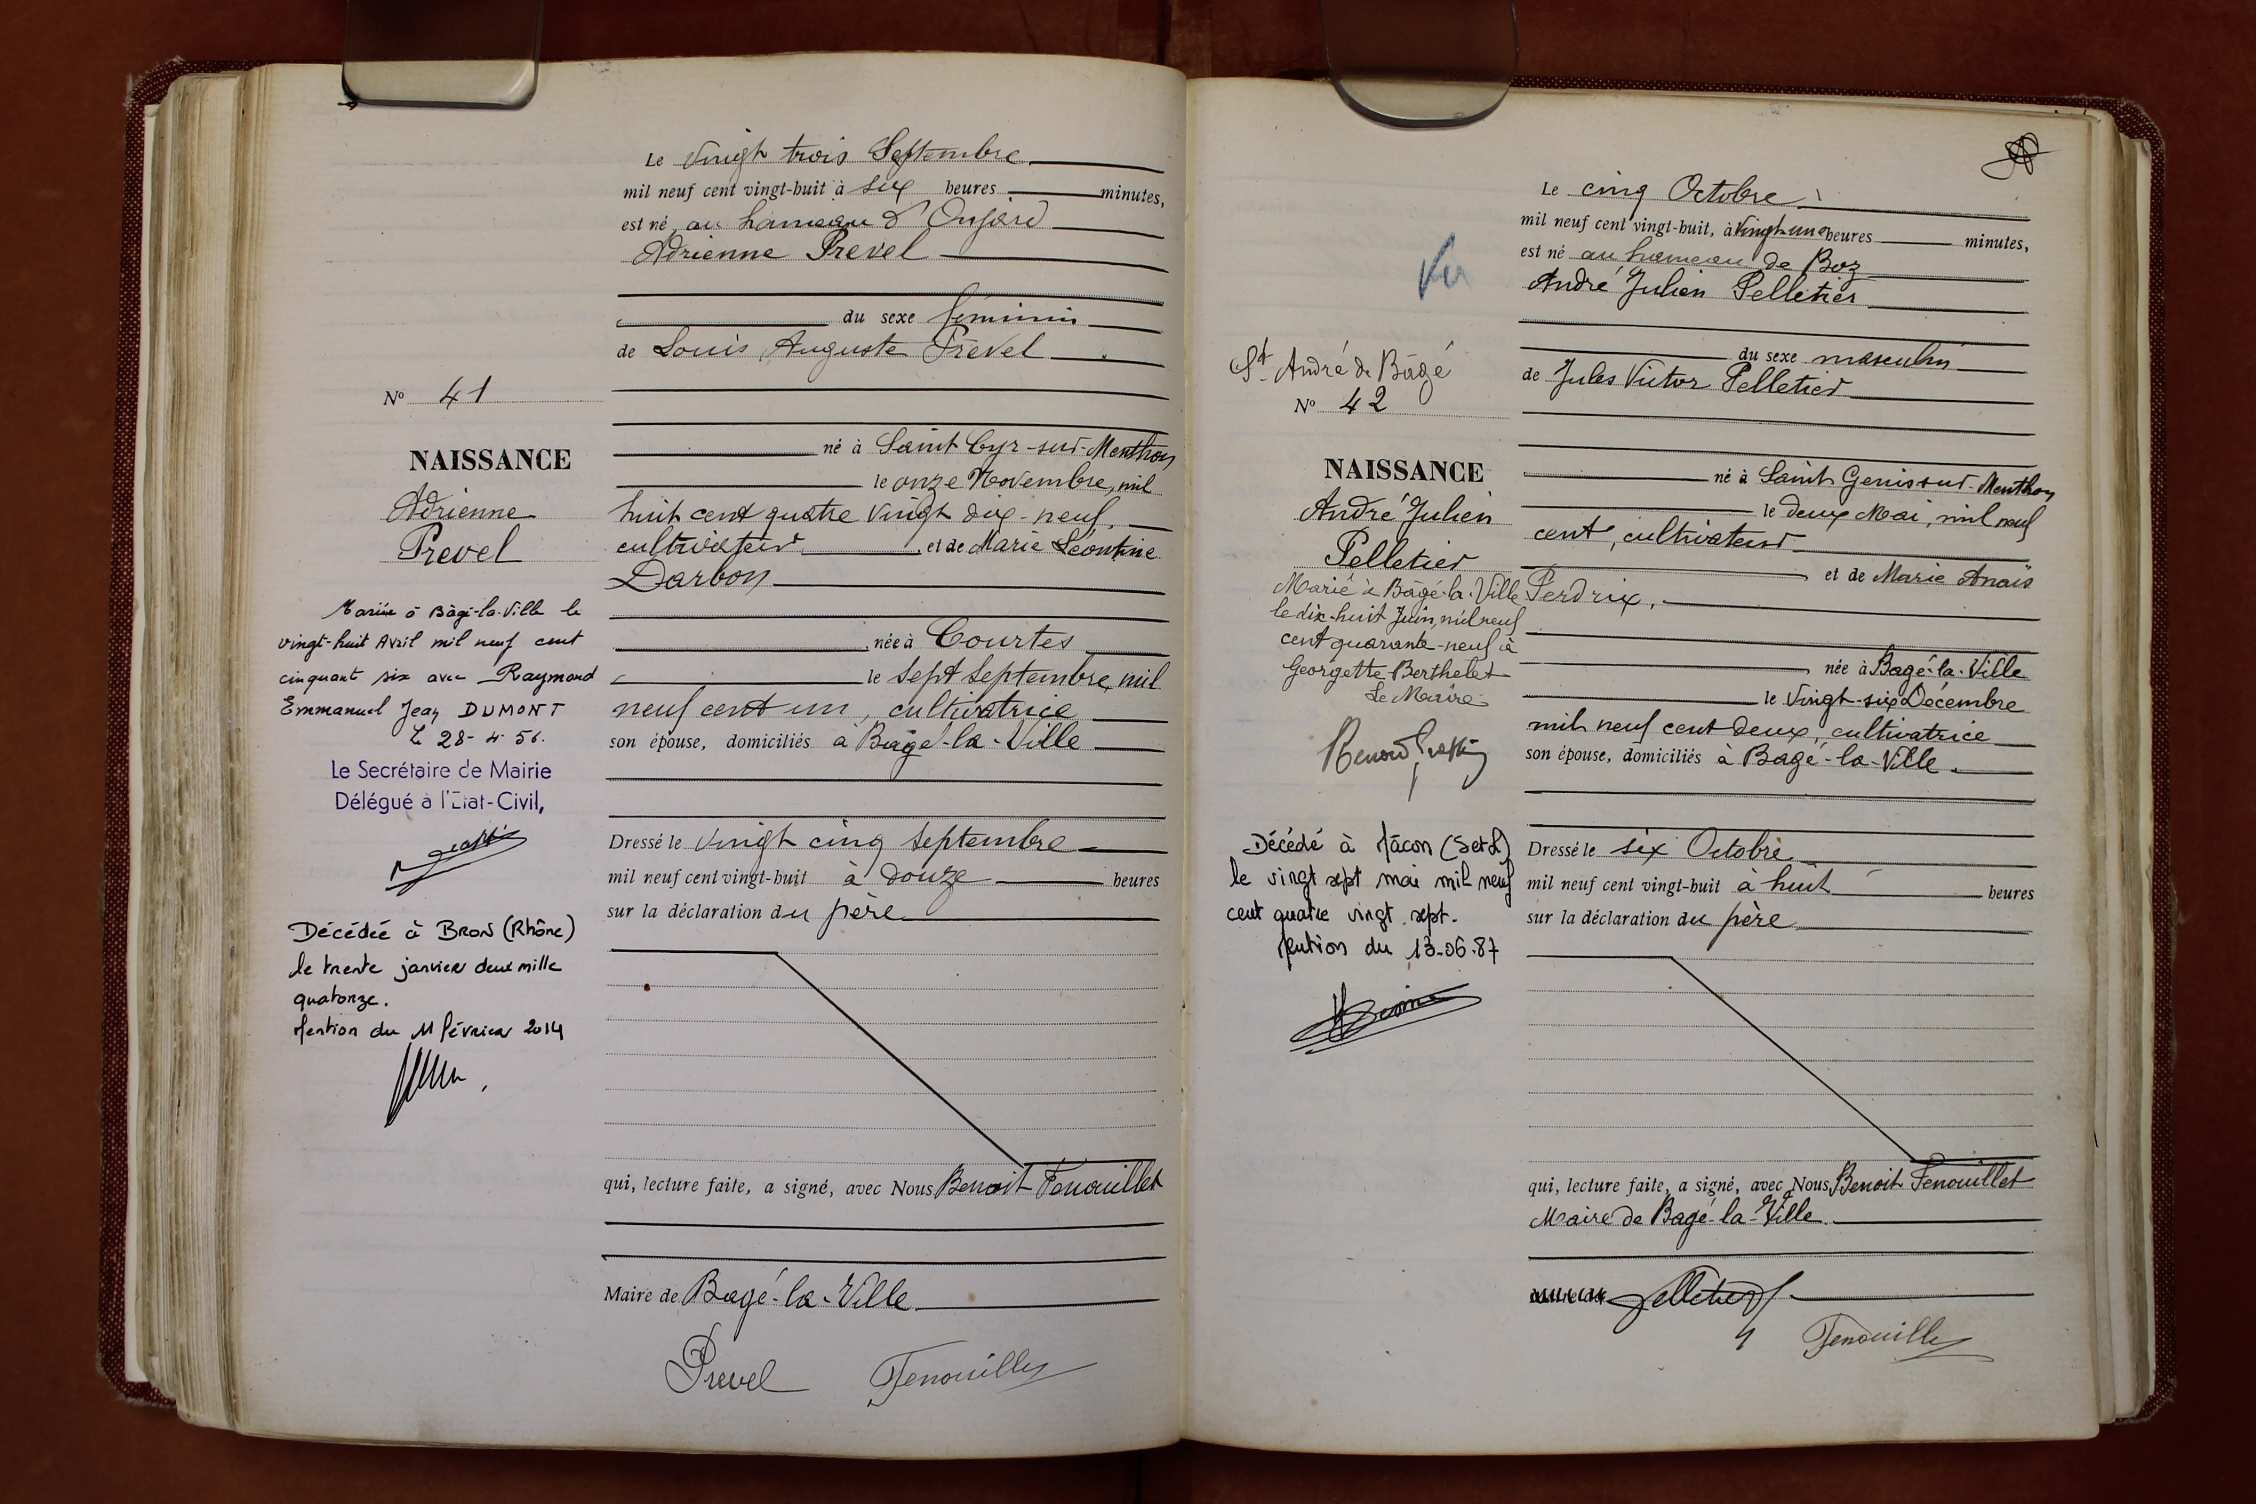 Le vingt trois Septembre
mil neuf cent vingt-huit à six heures minutes,
est né au hameau d'
Adrienne Prevel
du sexe féminin
de Louis Auguste Prevel
No 41
né à Saint Cyr-sur-Menthon
le onze Novembre, mil
NAISSANCE
Adrienne
Prevel
huit cent quatre vingt dix-neuf,
cultivateur, et de Marie Léontine
Darbon
née à Courtes
le sept Septembre, mil
neuf cent un, cultivatrice
son épouse, domiciliés à Bâgé-la-Ville
Mariée à Bâgé-la-Ville le
vingt-huit Avril mil neuf cent
cinquant six avec Raymond
Emmanuel Jean DUMONT
L 28-4-56.
Le Secrétaire de Mairie
Délégué à l'Etat-Civil,
Dressé le vingt cinq Septembre
mil neuf cent vingt-huit à douze heures
sur la déclaration du père
Décédée à BRON (Rhône)
le trente janvier deux mille
quatorze.
Mention du 11 février 2014
qui, lecture faite, a signé, avec Nous Benoit Fenouillet
Maire de Bagé-la-Ville
Prevel Fenouillet
Le cinq Octobre
mil neuf cent vingt-huit, à vingt une heures minutes,
est né au hameau de Boz
André Julien Pelletier
Vu
du sexe masculin
de Jules Victor Pelletier
St André de Bâgé
No 42
né à Saint Genis sur-Menthon
le deux Mai, mil neuf
NAISSANCE
André Julien
Pelletier
cent, cultivateur
et de Marie Anaïs
Perdrix,
née à Bagé-la-Ville
le vingt-six Décembre
mil neuf cent deux, cultivatrice
son épouse, domiciliés à Bagé-la-Ville.
Marié à Bâgé-la-Ville
le dix-huit Juin, mil neuf
cent quarante-neuf à
Georgette Berthelet
Le Maire
Dressé le six Octobre
mil neuf cent vingt-huit à huit heures
sur la déclaration du père
Décédé à Mâcon (S et L)
le vingt sept mai mil neuf
cent quatre vingt sept.
Mention du 13.06.87
qui, lecture faite, a signé, avec Nous Benoit Fenouillet
Maire de Bagé-la-Ville
Pelletier
Fenouillet